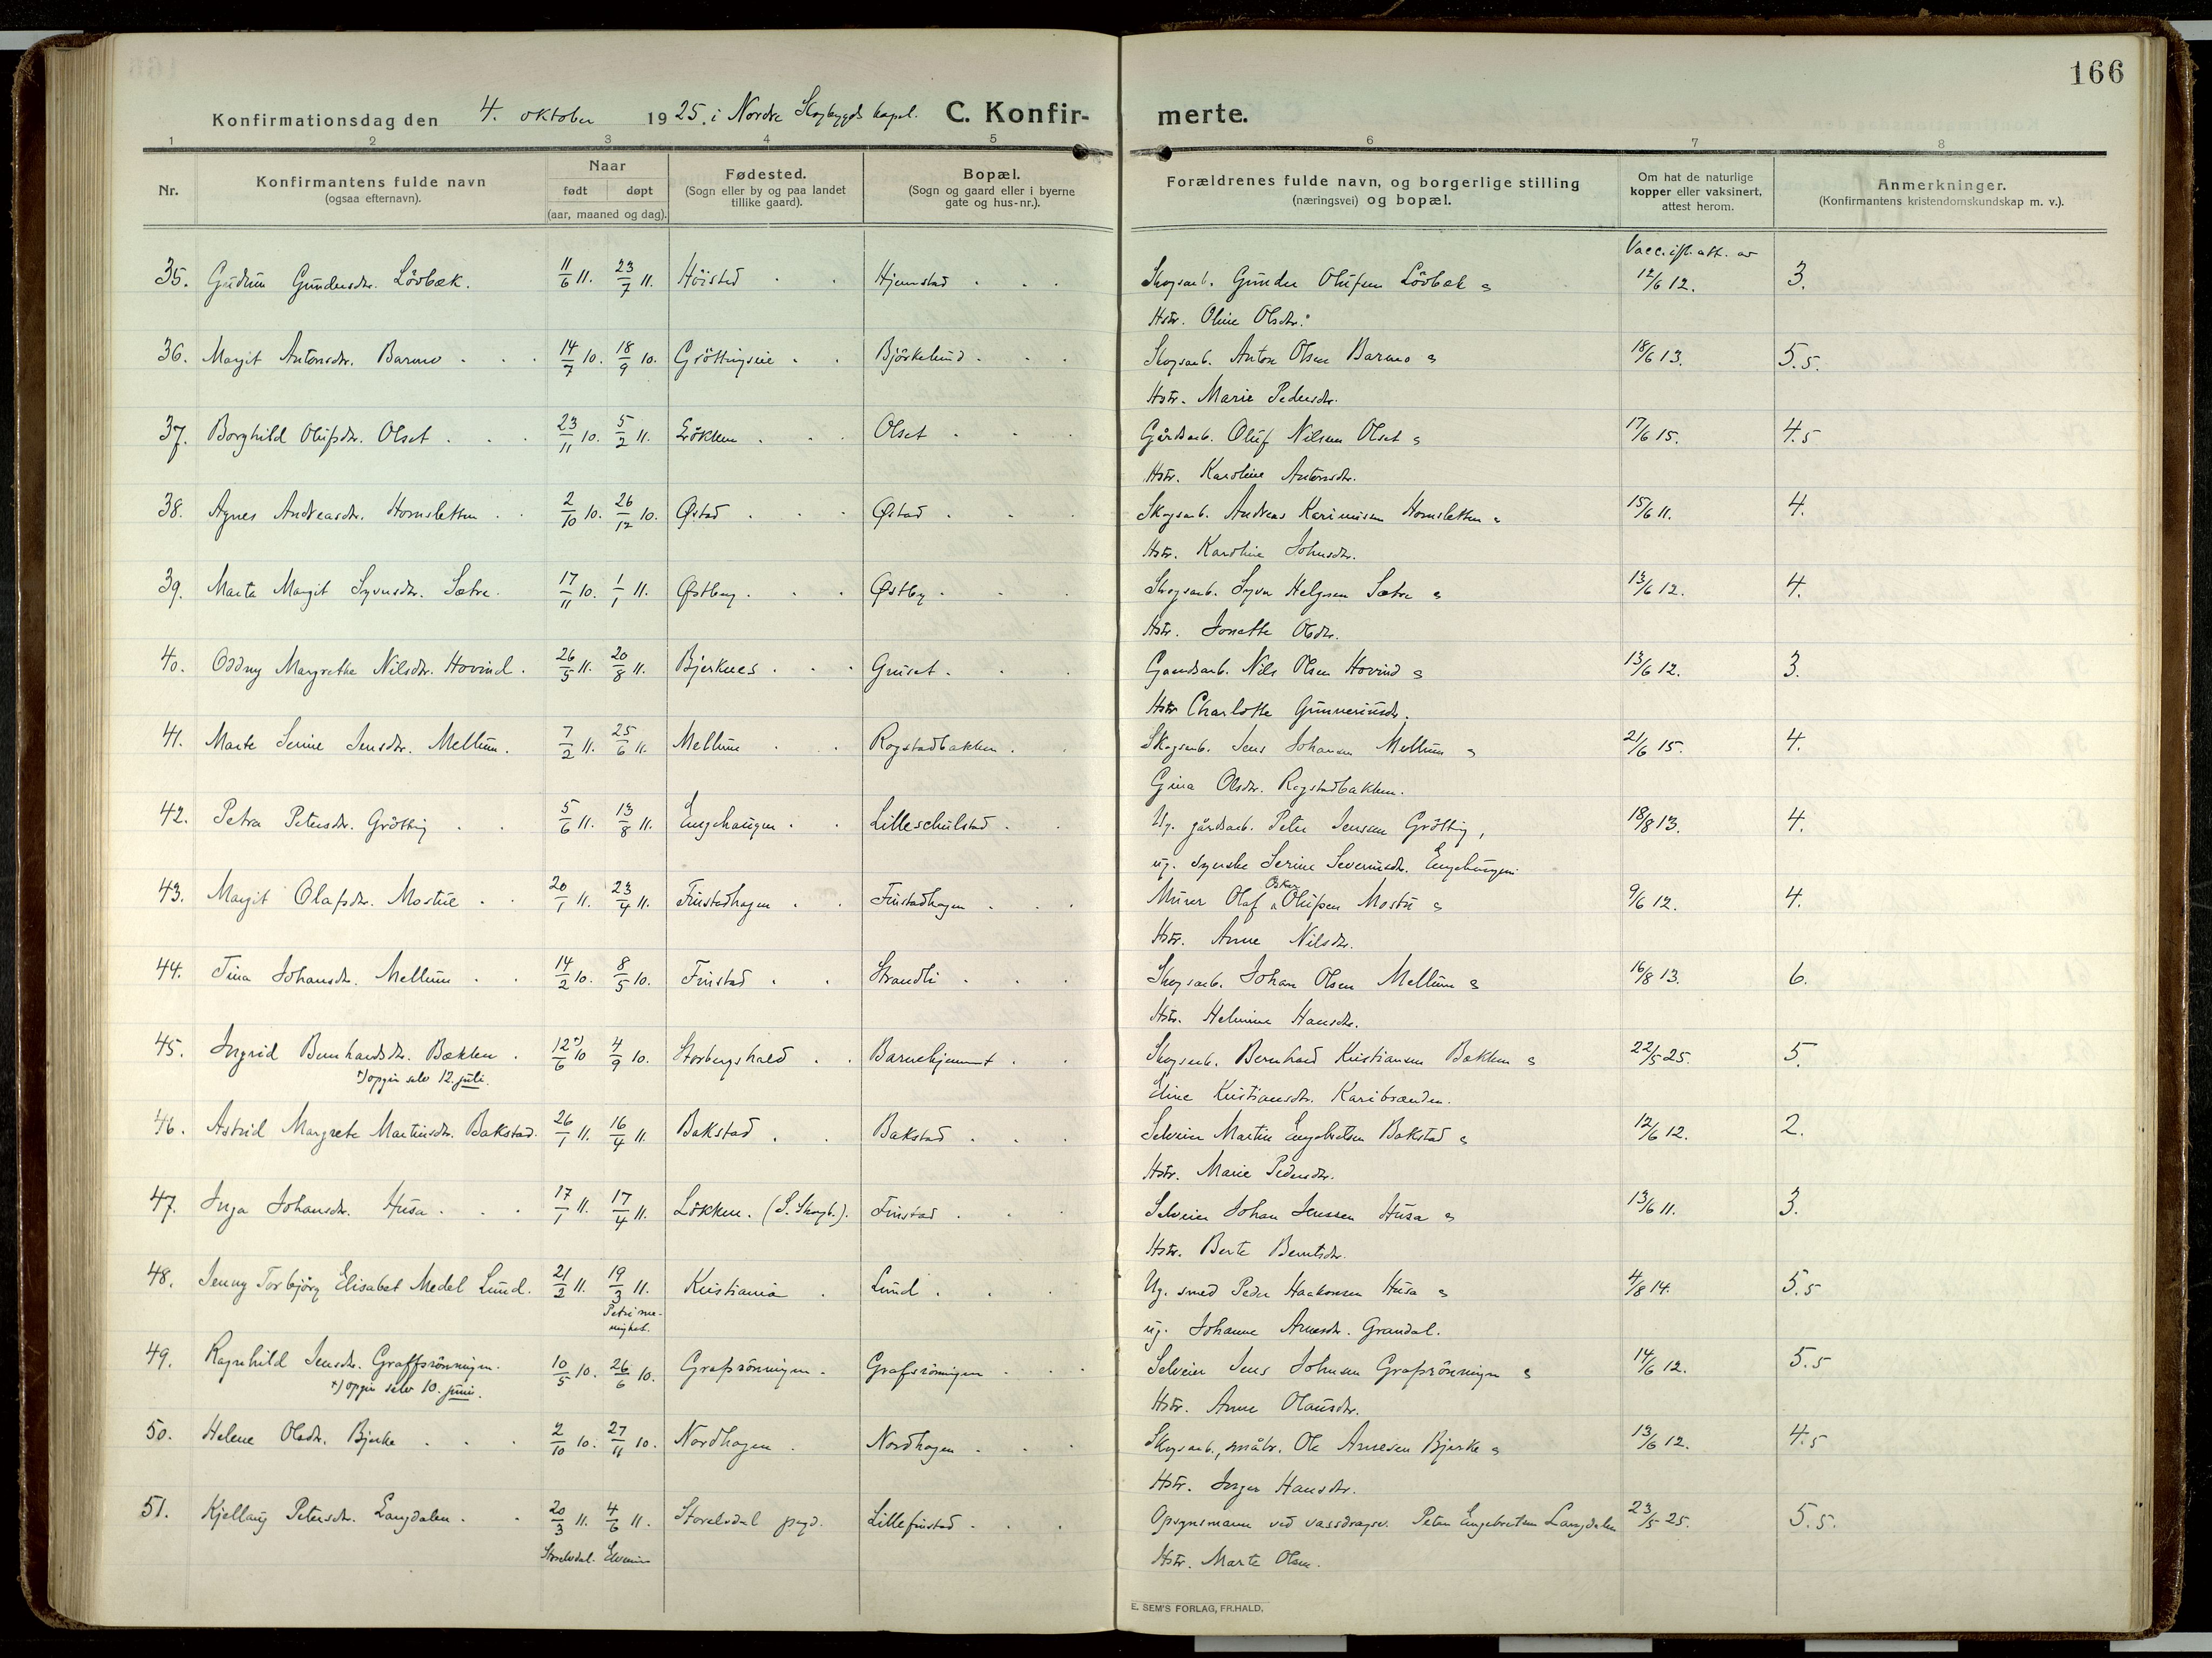 166
Konfirmationsdag den 4. oktober 1925. i Nordre Skogbygds kapel. C. Konfir- merte.
1 2 3 4 5 6 7 8
Nr.
Konfirmantens fulde navn
(ogsaa efternavn).
Naar
født døpt
(aar, maaned og dag).
Fødested.
(Sogn eller by og paa landet
tillike gaard).
Bopæl.
(Sogn og gaard eller i byerne
gate og hus-nr.).
Forældrenes fulde navn, og borgerlige stilling
(næringsvei) og bopæl.
Om hat de naturlige
kopper eller vaksinert,
attest herom.
Anmerkninger.
(Konfirmantens kristendomskundskap m. v.).
35. Gudrun Gundersdtr. Lövbæk. 11/6 11. 23/7 11. Höisted Hjemstad Skogsarb. Gunder Olufsen Lövbæk & Vacc. ifl. att. av 12/6 12. 3.
Hstr. Oline Olsdtr.
36. Margit Antonsdtr. Barmo 14/7 10. 18/9 10. Gröttingseie Björkelund Skogsarb. Anton Olsen Barmo & 18/6 13. 5.5.
Hstr. Marie Pedersdtr.
37. Borghild Olufsdtr. Olset 23/11 10. 5/2 11. Lökken Olset Gårdsarb. Oluf Nilsen Olset & 17/6 15. 4.5
Hstr. Karoline Antonsdtr.
38. Agnes Andreasdtr. Hornsletten 2/10 10. 26/12 10. Østad Østad Skogsarb. Andreas Karinusen Hornsletten & 15/6 11. 4.
Hstr. Karoline Johnsdtr.
39. Marta Margit Syversdtr. Sætre. 17/11 10. 1/1 11. Østby Østby Skogsarb. Syver Helgesen Sætre & 13/6 12. 4.
Hstr. Jonette Olsdtr.
40. Oddny Margrethe Nilsdtr. Hovind. 26/5 11. 20/8 11. Bjerknes Gruset Gaardsarb. Nils Olsen Hovind & 13/6 12. 3.
Hstr Charlotte Gunneriusdtr.
41. Marte Serine Jensdtr. Mellum. 7/2 11. 25/6 11. Mellum Rogstadbakken Skogsarb. Jens Johansen Mellum & 21/6 15. 4.
Gina Olsdtr. Rogstadbakken.
42. Petra Petersdtr. Grötting 5/6 11. 13/8 11. Engehaugen Lilleschulstad Ug. gårdsarb. Peter Jensen Grötting, 18/8 13. 4.
ug. syerske Serine Severinsdtr. Engehaugen
43. Margit Olafsdtr. Mostue 20/1 11. 23/4 11. Finstadhagen Finstadhagen Murer Olaf Oskar Olufsen Mostu & 9/6 12. 4.
Hstr. Anne Nilsdtr.
44. Tina Johansdtr. Mellum 14/2 10. 8/5 10. Finstad Strandli Skogsarb. Johan Olsen Mellum & 16/8 13. 6.
Hstr. Helmine Hansdtr.
45. Ingrid Bernhardsdtr. Bækken 12*)/6 10 4/9 10. Storbergshald Barnehjemmet Skogsarb. Bernhard Kristiansen Bækken & 22/5 25. 5.
*) opgir selv 12. juli. Eline Kristiansdtr. Karibrænden.
46. Astrid Margrete Martinsdtr. Bakstad. 26/1 11. 16/4 11. Bakstad Bakstad Selveier Martin Engebretsen Bakstad & 12/6 12. 2.
Hstr. Marie Pedersdtr.
47. Inga Johansdtr. Husa 17/1 11. 17/4 11. Lökken. (S. Skogb.). Finstad Selveier Johan Jenssen Husa & 13/6 11. 3.
Hstr. Berte Berntsdtr.
48. Jenny Torbjörg Elisabet Medel Lund. 21/2 11. 19/3 11. Kristiania Lund Ug. smed Peder Haakonsen Husa & 4/8 14. 5.5
Petri me-
nighet. ug. Johanne Arnesdtr. Grandal.
49. Ragnhild Jensdtr. Graffsrönningen. 10/5 10. 26/6 10. Grafsrönningen Grafsrönningen Selveier Jens Johnsen Grafsrönningen & 14/6 12. 5.5
*) opgir selv 10. juni. Hstr. Anne Olausdtr.
50. Helene Olsdtr. Bjerke 2/10 10. 27/11 10. Nordhagen Nordhagen Skogsarb., småbr. Ole Arnesen Bjerke & 13/6 12. 4.5
Hstr. Inger Hansdtr.
51. Kjellaug Petersdtr. Langdalen 20/3 11. 4/6 11. Storelvdal pgd. Lillefinstad Opsynsmann ved vassdragsv. Peter Engebretsen Langdalen 23/5 25. 5.5.
Storelvdal. Hstr. Marte Olsen.
E. SEM'S FORLAG, FR.HALD.